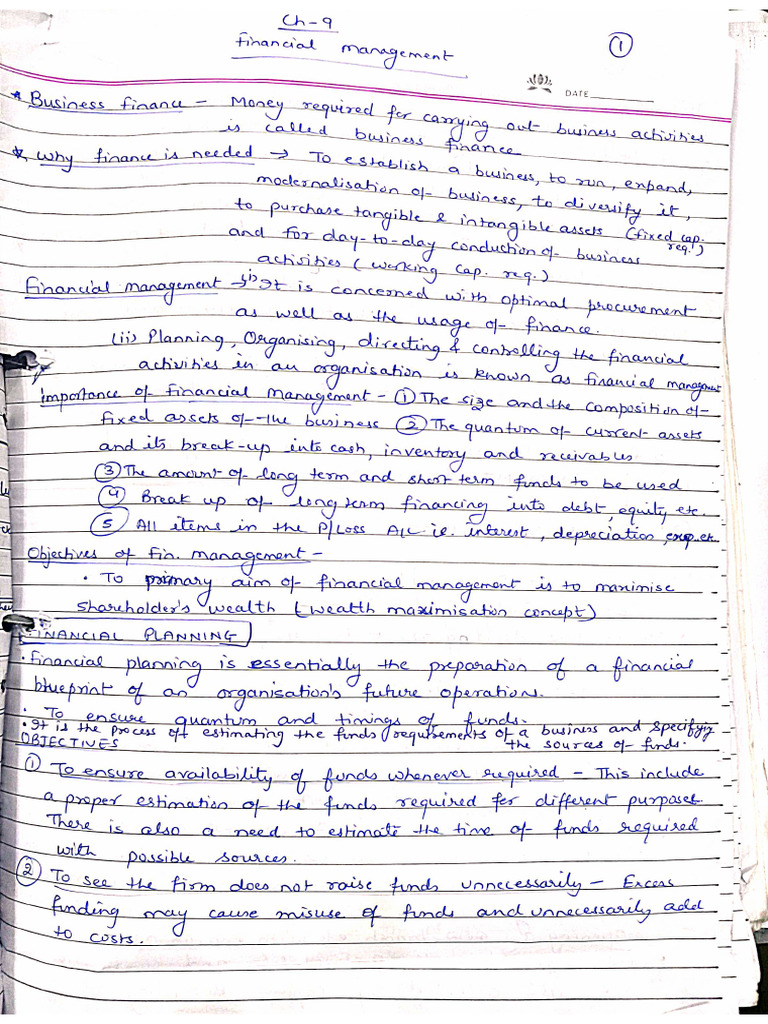 Ch-9
Financial management
①
DATE
* Business finance - Money required for carrying out business activities
is called business finance
* Why finance is needed → To establish a business, to run, expand,
modernalisation of business, to diversify it,
to purchase tangible & intangible assets (fixed cap. req.')
and for day-to-day conduction of business
activities (working cap. req.)
Financial management → (i) It is concerned with optimal procurement
as well as the usage of finance.
(ii) Planning, Organising, directing & controlling the financial
activities in an organisation is known as financial management
Importance of financial management - ① The size and the composition of
fixed assets of the business ② The quantum of current assets
and its break-up into cash, inventory and receivables
③ The amount of long term and short term funds to be used
④ Break up of long term financing into debt, equity, etc.
⑤ All items in the P/Loss A/c ie. interest, depreciation, exp. etc
Objectives of fin. management -
• To primary aim of financial management is to maximise
shareholder's wealth (wealth maximisation concept)
FINANCIAL PLANNING
• Financial planning is essentially the preparation of a financial
blueprint of an organisation's future operations.
• To ensure quantum and timings of funds.
• It is the process of estimating the funds requirements of a business and specifying
the sources of funds.
OBJECTIVES
① To ensure availability of funds whenever required - This include
a proper estimation of the funds required for different purposes.
There is also a need to estimate the time of funds required
with possible sources.
② To see the firm does not raise funds unnecessarily - Excess
funding may cause misuse of funds and unnecessarily add
to costs.